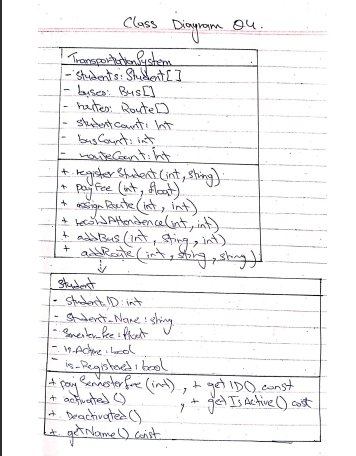 Class Diagram Q4.
TransportationSystem
- Students: Student[]
- buses: Bus[]
- routes: Route[]
- studentCount: Int
- busCount: int
- routeCount: Int
+ registerStudent(int, string)
+ payFee (int, float)
+ assignRoute(int, int)
+ recordAttendence(int, int)
+ addBus (int, string, int)
+ addRoute (int, string, string)
Student
- Student_ID: int
- Student_Name: string
- SemesterFee: float
- is-Active: bool
- is_Registered: bool
+ paySemesterfee (int) , + get ID() const
+ activated () , + get IsActive() const
+ Deactivated ()
+ getName() const